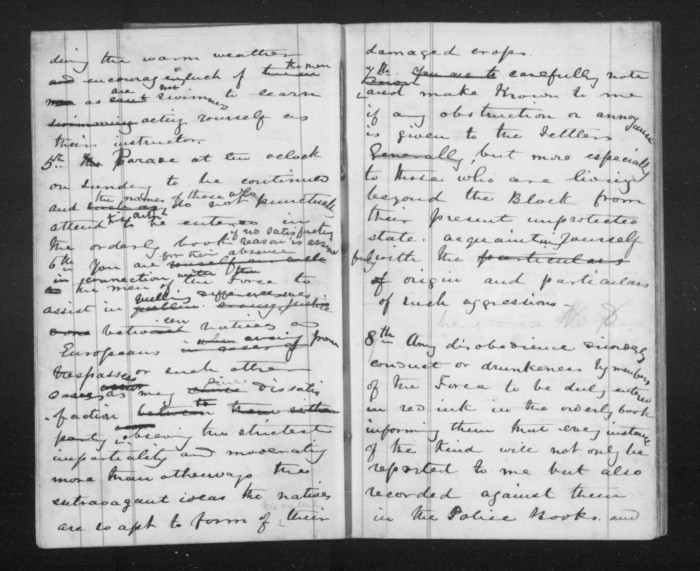 during the warm weather
the men
and encourage such of the men
are not
as can't swimmers to learn
swimming acting yourself as
their instructor.
5th The Parade at ten o'clock
on Sunday to be continued
the names of those who
and do not punctually
attend to be entered in
if no satisfactory
the orderly book reason is
for their absence
6th You are
in connection with the
the men of the Force to
differences
assist in
between natives and
Europeans in cases of from
trespasses or such other
cases as may dissatis
-faction between them either
party observing the strictest
impartiality and moderating
more than otherways the
extravagant ideas the natives
are so apt to form of their
damaged crops.
7th You are to carefully note
and make Known to me
if any obstruction or annoyance
is given to the Settlers
Generally, but more especially
to those who are living
beyond the Block from
their present unprotected
state. acquainting yourself
fully with the particulars
of origin and particulars
of such aggressions -
8th Any disobedience disorderly
conduct or drunkeness by members
of the Force to be duly entered
in red ink in the orderly book
informing them that every instance
of the kind will not only be
reported to me but also
recorded against them
in the Police Books. and